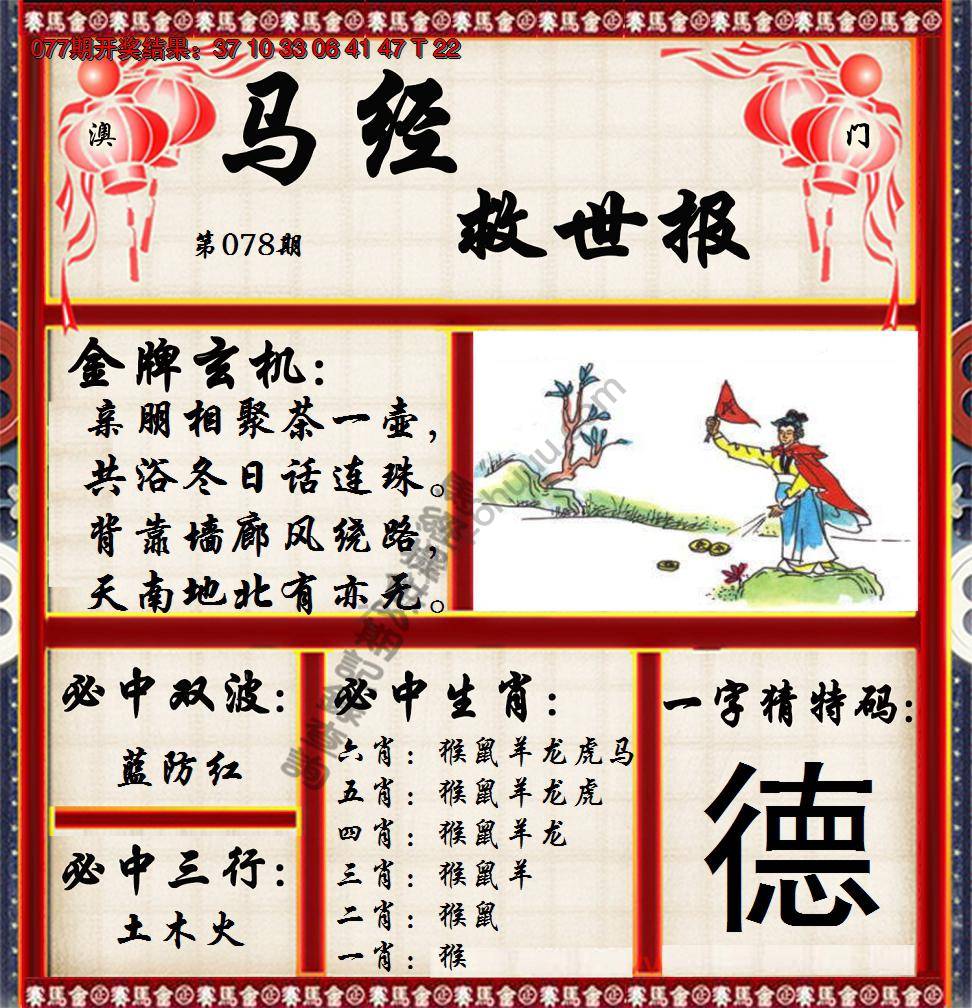 077期开奖结果：37 10 33 06 41 47 T 22
澳
门
马经
救世报
第078期
金牌玄机：
亲朋相聚茶一壶，
共浴冬日话连珠。
背靠墙廊风绕路，
天南地北有亦无。
必中双波：
蓝防红
必中三行：
土木火
必中生肖：
六肖：猴鼠羊龙虎马
五肖：猴鼠羊龙虎
四肖：猴鼠羊龙
三肖：猴鼠羊
二肖：猴鼠
一肖：猴
一字猜特码：
德